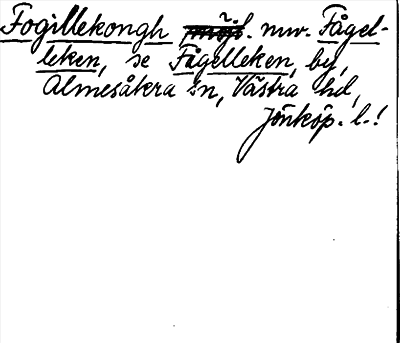 Fogillekongh nuv. Fågel-
leken, se Fågelleken, by,
Almesåkra sn, Västra hd,
Jönköp. l.!